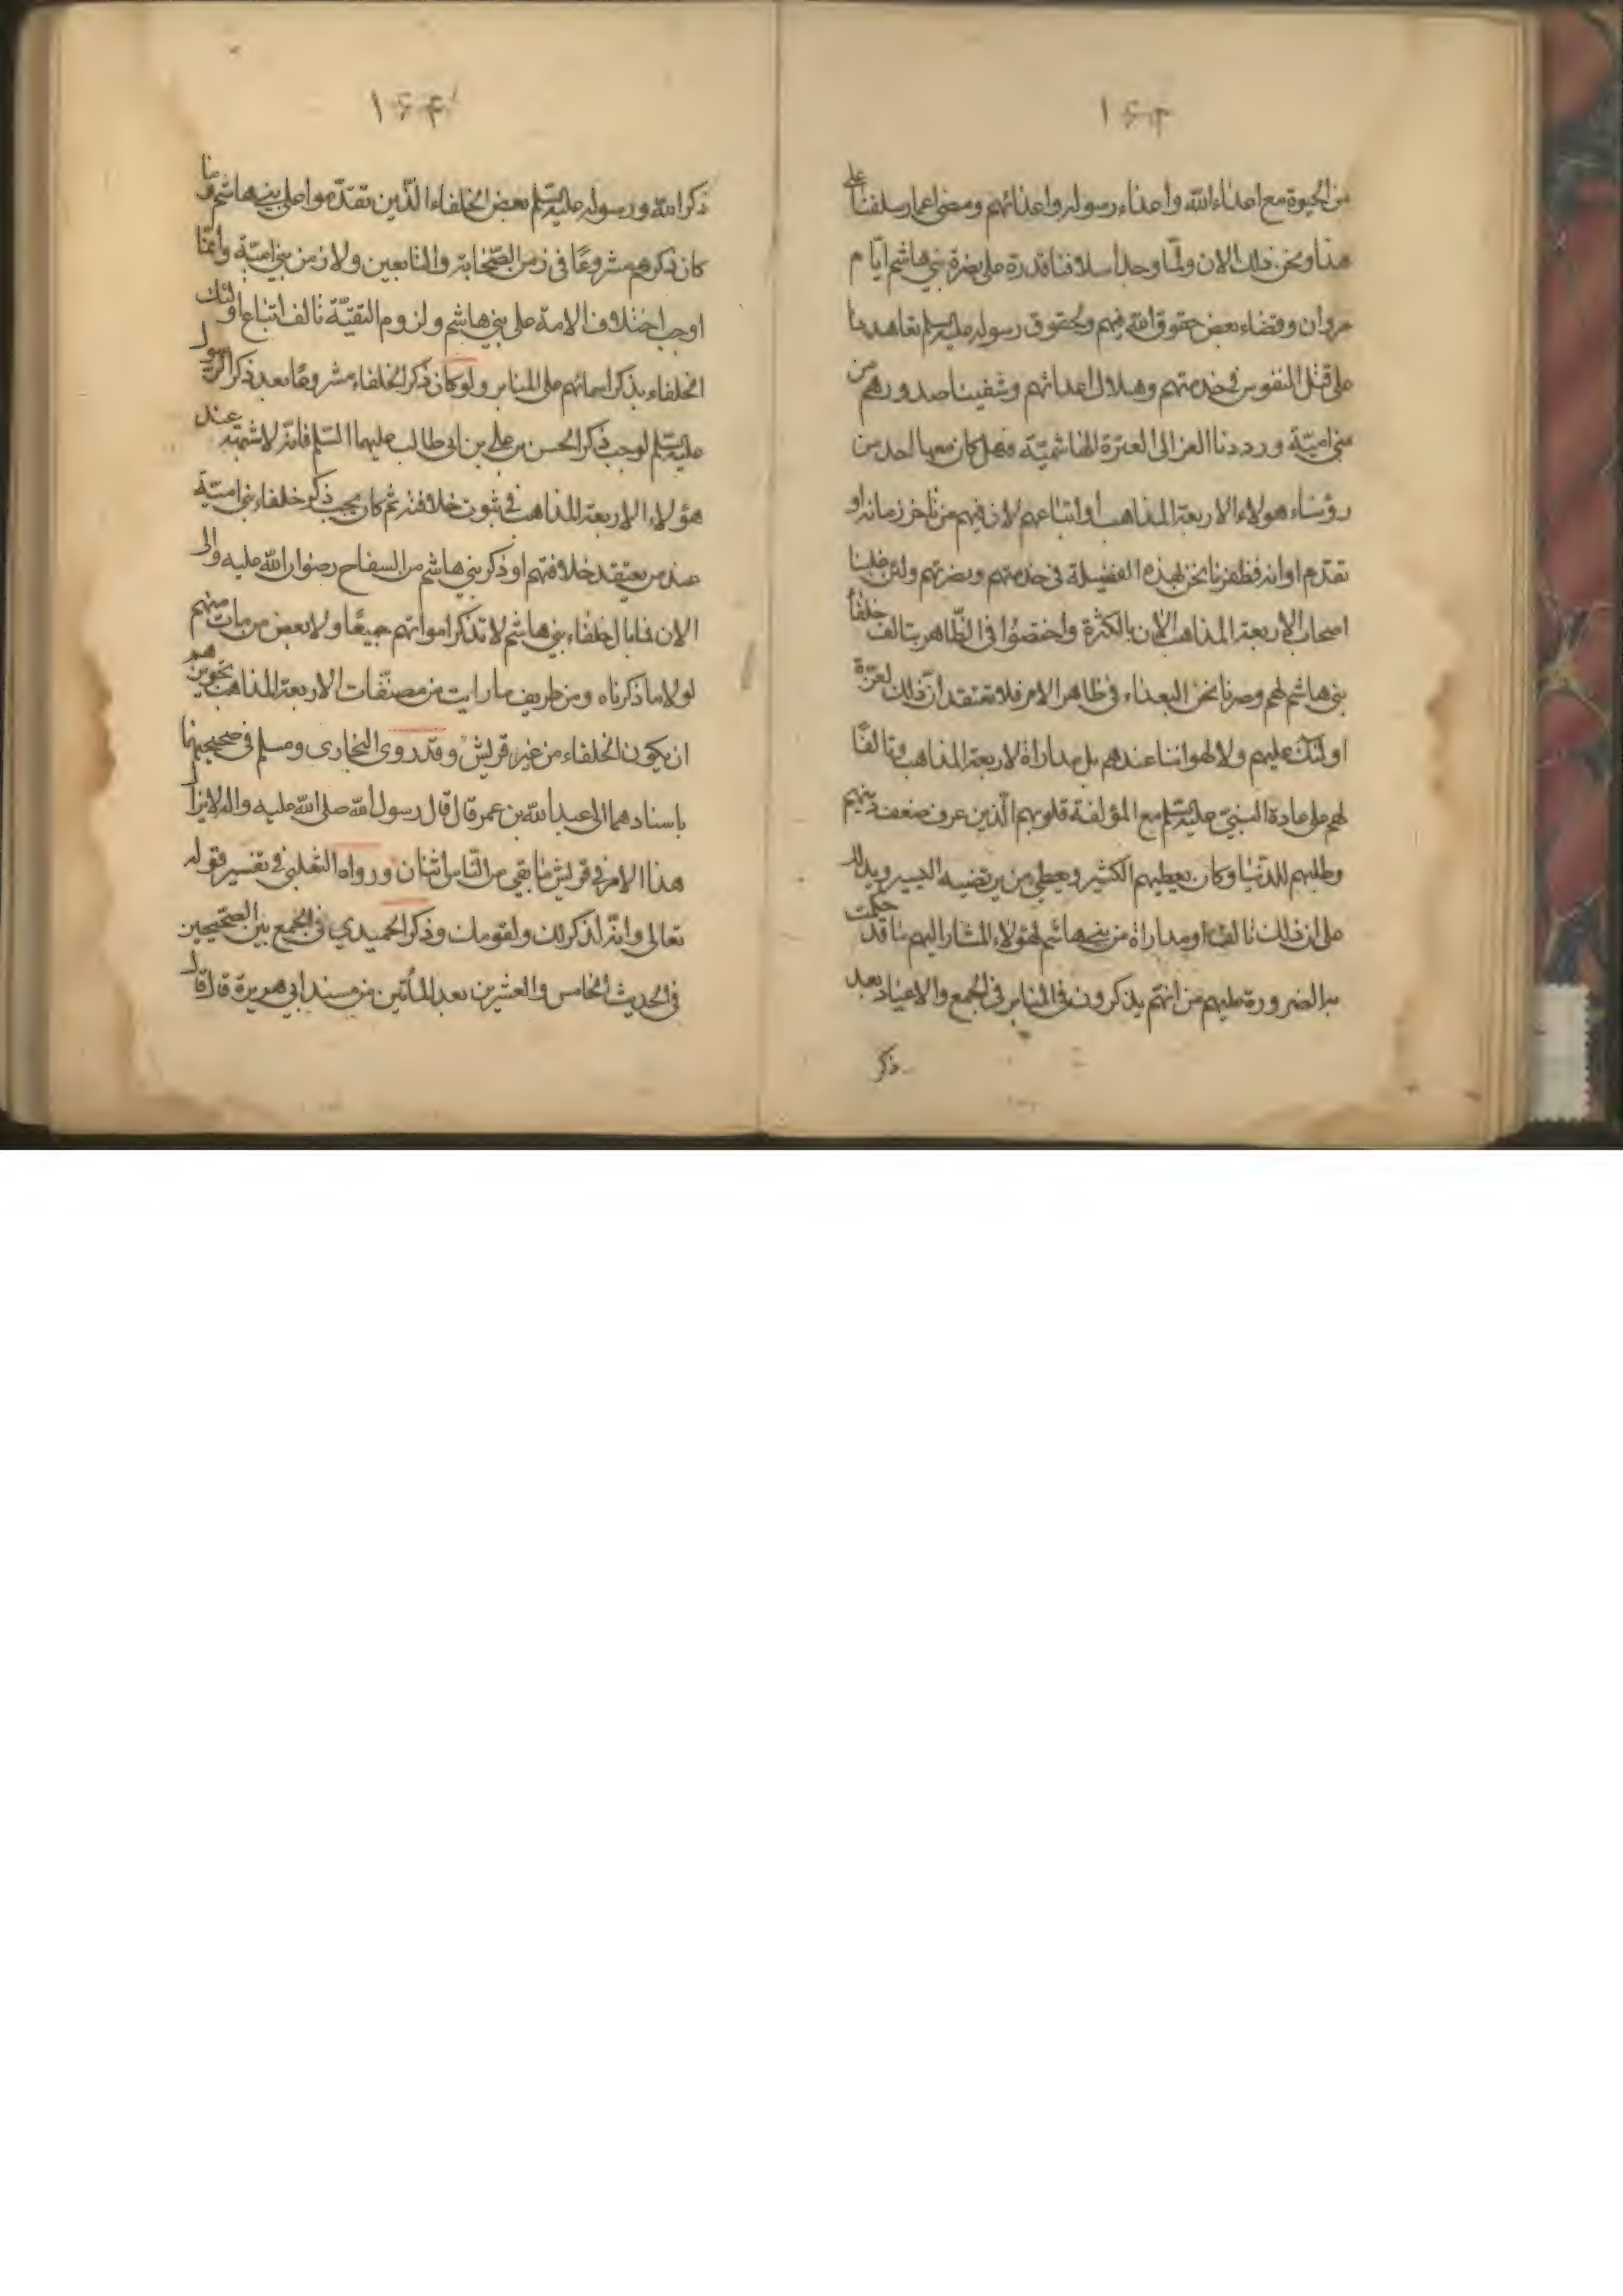 ١٦٣
من الحيوة مع اعداء الله واعداء رسوله واعدائهم ومضى اعمار سلفنا على
هذا ونحن كذلك الان ولما وجد اسلافنا قدرة على نصرة بني هاشم ايام
مروان وقضاء بعض حقوق الله فيهم ولحقوق رسوله عليه السلم تعاهدنا
على قتل النفوس في خدمتهم وهلاك اعدائهم وشفينا صدورهم من
بني امية ورددنا العز الى العترة الهاشمية فهل كان معها احد من
رؤساء هولاء الاربعة المذاهب او اتباعهم لان فيهم من تاخر زمانه او
تقدم اوانه فظفرنا نحن بهذه الفضيلة في خدمتهم ونصرتهم ولئن غلبنا
اصحاب الاربعة المذاهب الان بالكثرة واختصوا في الظاهر بتالف خلفاء
بني هاشم لهم وصرنا نحن البعداء في ظاهر الامر فلا تعتقد ان ذلك لعزة
اولئك عليهم ولا لهواننا عندهم بل مداراة لاربعة المذاهب وتالفا
لهم على عادة النبي عليه السلم مع المؤلفة قلوبهم الذين عرف ضعف دينهم
وطلبهم للدنيا وكان يعطيهم الكثير ويعطي من يرتضيه اليسير ويدلك
على ان ذلك تالف او مداراة من بني هاشم لهؤلاء المشار اليهم ما قد حكمت
به الضرورة عليهم من انهم يذكرون في المنابر في الجمع والاعياد بعد
ذكر
١٦٤
ذكر الله ورسوله عليه السلم بعض الخلفاء الذين تقدموا على بني هاشم وما
كان ذكرهم مشروعا في زمن الصحابة والتابعين ولا زمن بني امية وانما
اوجب اختلاف الامة على بني هاشم ولزوم التقية تالف اتباع اولئك
الخلفاء بذكر اسمائهم على المنابر ولو كان ذكر الخلفاء مشروعا بعد ذكر الرسول
عليه السلم لوجب ذكر الحسن بن علي بن ابي طالب عليهما السلم فانه لا شبهة عند
هؤلاء الاربعة المذاهب في ثبوت خلافته ثم كان يجب ذكر خلفاء بني امية
عند من يعتقد خلافتهم او ذكر بني هاشم من السفاح رضوان الله عليه والى
الان فما بال خلفاء بني هاشم لا تذكر امواتهم جميعا ولا بعض من مات منهم
لولا ما ذكرناه ومن طريف ما رايت من مصنفات الاربعة المذاهب تجويزهم
ان يكون الخلفاء من غير قريش وقد روى البخاري ومسلم في صحيحيهما
باسنادهما الى عبد الله بن عمر قال قال رسول الله صلى الله عليه واله لا يزال
هذا الامر في قريش ما بقي من الناس اثنان ورواه الثعلبي في تفسير قوله
تعالى وانه لذكر لك ولقومك وذكر الحميدي في الجمع بين الصحيحين
في الحديث الخامس والعشرين بعد المأتين من مسند ابي هريرة قال قال